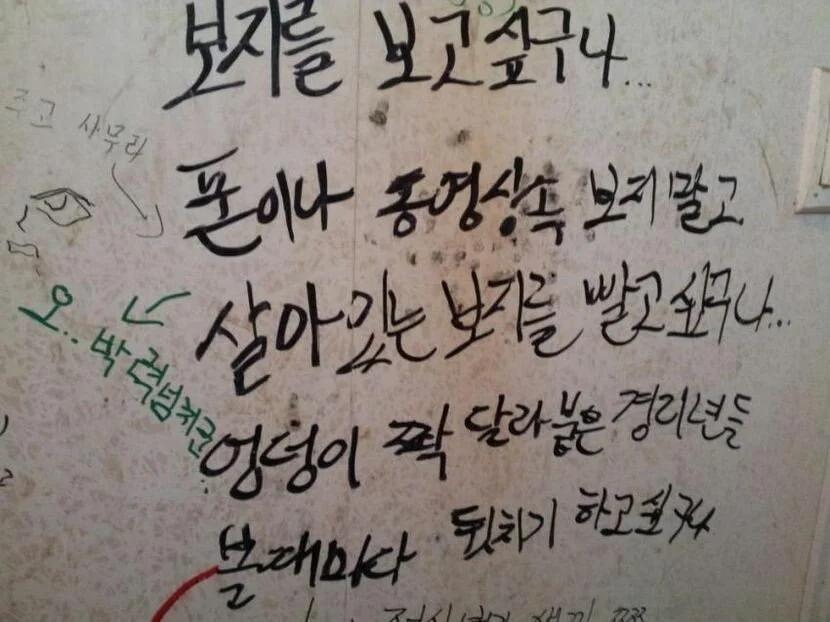 보지를 보고싶구나...
주고 사무라
폰이나 동영상속 보지말고
살아있는 보지를 빨고싶구나...
오.. 박력넘쳐군
엉덩이 짝 달라붙은 경리년들
볼때마다 뒷치기 하고싶구나